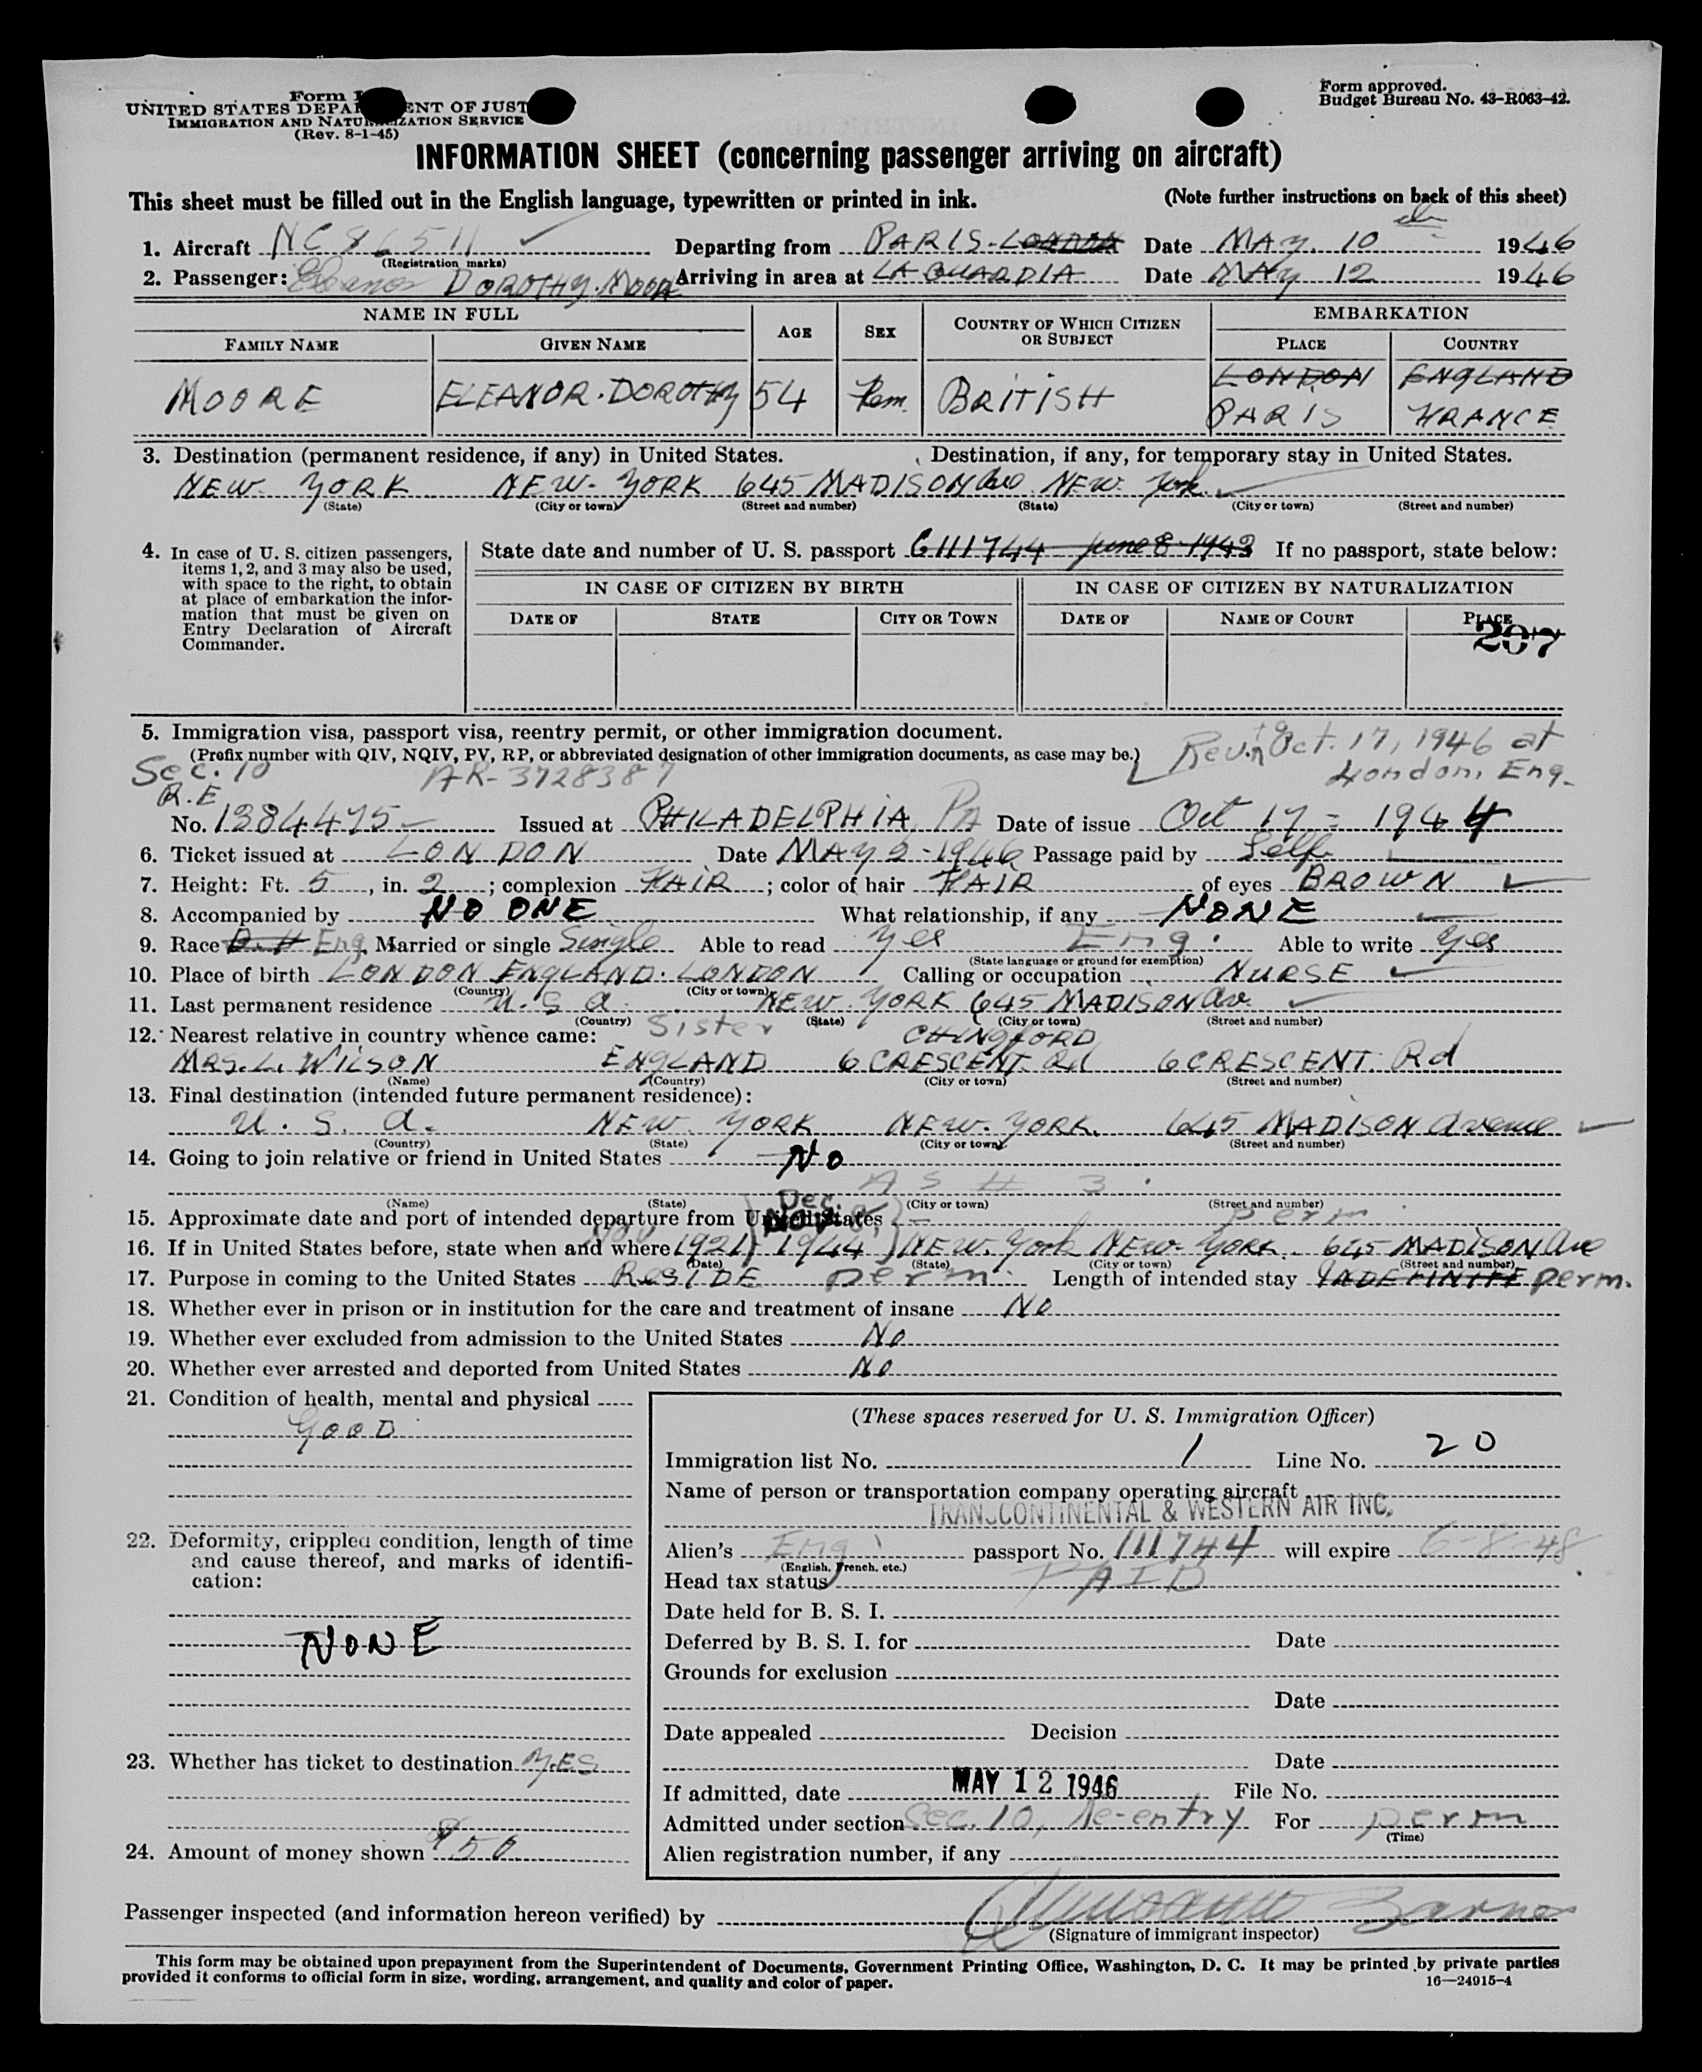 Form I
UNITED STATES DEPA ENT OF JUST
IMMIGRATION AND NATU IZATION SERVICE
(Rev. 8-1-45)
Form approved.
Budget Bureau No. 43-R063-42.
INFORMATION SHEET (concerning passenger arriving on aircraft)
This sheet must be filled out in the English language, typewritten or printed in ink. (Note further instructions on back of this sheet)
1. Aircraft NC 86511 Departing from PARIS-LONDON Date MAY. 10 1946
(Registration marks)
2. Passenger: Eleanor DOROTHY. MOORE Arriving in area at LA GUARDIA Date MAY 12 1946
NAME IN FULL AGE SEX COUNTRY OF WHICH CITIZEN OR SUBJECT EMBARKATION
FAMILY NAME GIVEN NAME PLACE COUNTRY
LONDON ENGLAND
MOORE ELEANOR. DOROTHY 54 Fem. BRITISH PARIS FRANCE
3. Destination (permanent residence, if any) in United States. Destination, if any, for temporary stay in United States.
NEW YORK NEW-YORK 645 MADISON Ave. NEW York
(State) (City or town) (Street and number) (State) (City or town) (Street and number)
4. In case of U. S. citizen passengers, items 1, 2, and 3 may also be used, with space to the right, to obtain at place of embarkation the information that must be given on Entry Declaration of Aircraft Commander.
State date and number of U. S. passport C 111744 June 8-1943 If no passport, state below:
IN CASE OF CITIZEN BY BIRTH IN CASE OF CITIZEN BY NATURALIZATION
DATE OF STATE CITY OR TOWN DATE OF NAME OF COURT PLACE
207
5. Immigration visa, passport visa, reentry permit, or other immigration document.
(Prefix number with QIV, NQIV, PV, RP, or abbreviated designation of other immigration documents, as case may be.)
Oct. 17, 1946 at
London, Eng.
Sec. 10 AR-3728387
R.E
No. 1384475 Issued at PHILADELPHIA PA Date of issue Oct 17 = 1944
6. Ticket issued at LONDON Date MAY 2-1946 Passage paid by Self
7. Height: Ft. 5, in. 2; complexion FAIR; color of hair FAIR of eyes BROWN
8. Accompanied by NO ONE What relationship, if any NONE
9. Race Eng. Married or single Single Able to read yes Eng. Able to write yes
(State language or ground for exemption)
10. Place of birth LONDON ENGLAND. LONDON Calling or occupation NURSE
(Country) (City or town)
11. Last permanent residence U.S a. NEW YORK 645 MADISON Av.
(Country) (State) (City or town) (Street and number)
12. Nearest relative in country whence came: Sister CHINGFORD
MRS. L. WILSON ENGLAND 6 CRESCENT Rd 6 CRESCENT Rd
(Name) (Country) (City or town) (Street and number)
13. Final destination (intended future permanent residence):
U. S. a. NEW YORK NEW-YORK. 645 MADISON Avenue
(Country) (State) (City or town) (Street and number)
14. Going to join relative or friend in United States NO
A S H 3.
(Name) (State) (City or town) (Street and number)
Dec.
15. Approximate date and port of intended departure from United States Perm
16. If in United States before, state when and where Nov 1921 1944 NEW. York NEW-YORK. 645 MADISON Ave
(Date) (State) (City or town) (Street and number)
17. Purpose in coming to the United States RESIDE perm. Length of intended stay INDEFINITE perm.
18. Whether ever in prison or in institution for the care and treatment of insane NO
19. Whether ever excluded from admission to the United States No
20. Whether ever arrested and deported from United States No
21. Condition of health, mental and physical
GOOD
22. Deformity, crippled condition, length of time and cause thereof, and marks of identification:
NONE
23. Whether has ticket to destination YES
24. Amount of money shown $50
(These spaces reserved for U. S. Immigration Officer)
Immigration list No. 1 Line No. 20
Name of person or transportation company operating aircraft
TRANSCONTINENTAL & WESTERN AIR INC.
Alien's Eng. passport No. 111744 will expire 6-8-48
(English, French, etc.)
Head tax status PAID
Date held for B. S. I.
Deferred by B. S. I. for Date
Grounds for exclusion
Date
Date appealed Decision
Date
If admitted, date MAY 12 1946 File No.
Admitted under section Sec. 10, Re-entry For perm
(Time)
Alien registration number, if any
Passenger inspected (and information hereon verified) by Barnes
(Signature of immigrant inspector)
This form may be obtained upon prepayment from the Superintendent of Documents, Government Printing Office, Washington, D. C. It may be printed by private parties
provided it conforms to official form in size, wording, arrangement, and quality and color of paper. 16—24915-4